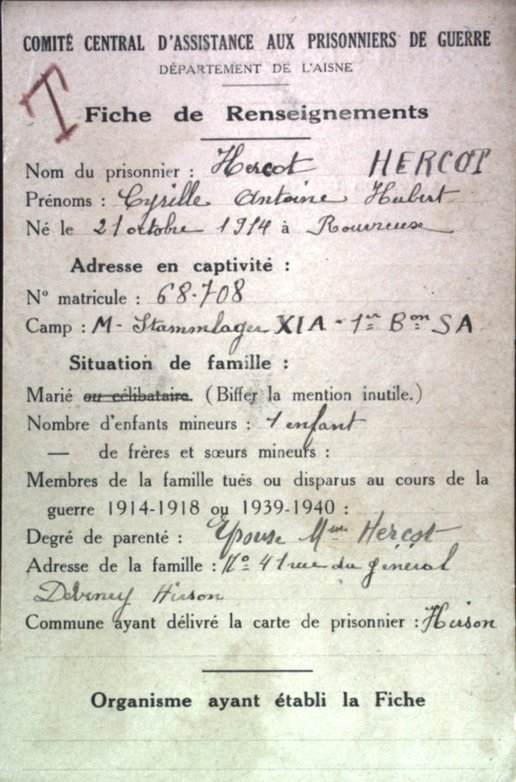 COMITÉ CENTRAL D'ASSISTANCE AUX PRISONNIERS DE GUERRE
DÉPARTEMENT DE L'AISNE
T
Fiche de Renseignements
Nom du prisonnier : Hercot HERCOT
Prénoms : Cyrille Antoine Hubert
Né le 21 octobre 1914 à Rouvreuse
Adresse en captivité :
N° matricule : 68.708
Camp : M - Stammlager XIA - 1er Bon SA
Situation de famille :
Marié ou célibataire. (Biffer la mention inutile.)
Nombre d'enfants mineurs : 1 enfant
— de frères et sœurs mineurs :
Membres de la famille tués ou disparus au cours de la
guerre 1914-1918 ou 1939-1940 :
Degré de parenté : Epouse Mme Hercot
Adresse de la famille : N° 41 rue du général
Hirson
Commune ayant délivré la carte de prisonnier : Hirson
Organisme ayant établi la Fiche